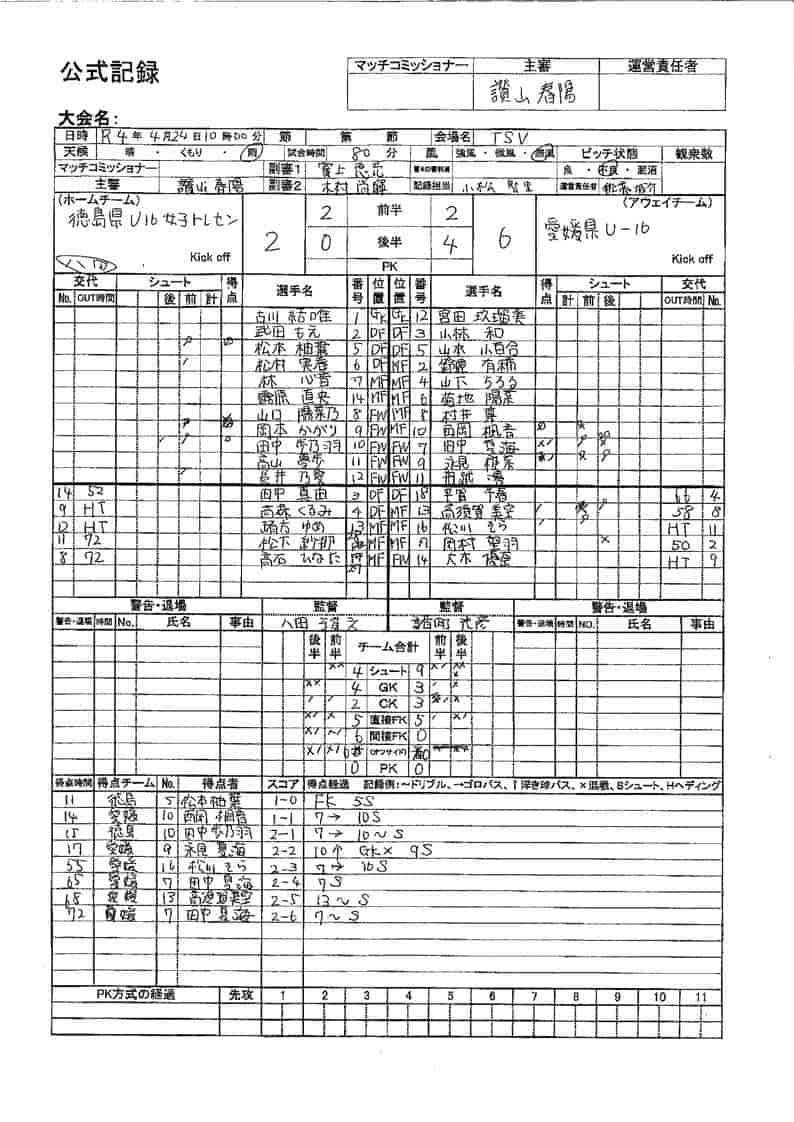 公式記録
マッチコミッショナー 主審 運営責任者
讃山 春陽
大会名:
日時 R4年4月24日10時00分 節 第 節 会場名 TSV
天候 晴 ・ くもり ・ 雨 試合時間 80分 風 強風 ・ 微風 ・ 無風 ピッチ状態 観衆数
マッチコミッショナー 副審1 良 ・ 不良 ・
主審 讃山 春陽 副審2 木村 記録担当 小松 運営責任者
(ホームチーム) 2 前半 2 (アウェイチーム)
徳島県U16女子トレセン 2 0 後半 4 6 愛媛県U-16
Kick off PK Kick off
交代 シュート 得点 選手名 番号 位置 位置 番号 選手名 得点 シュート 交代
No. OUT時間 後 前 計 計 前 後 OUT時間 No.
古川 結唯 1 GK GK 12 宮田 玖瑠実
武田 もえ 2 DF DF 3 小林 和
松本 柚葉 5 DF DF 5 山水 小百合
松村 実春 6 DF MF 2 有補
林 心音 7 MF MF 4 山下 ちろる
藤原 直央 14 MF MF 6 菊地 陽菜
山口 陽菜乃 8 FW MF 8 村井
岡本 かがり 9 FW MF 10 西岡 楓音
田中 歩乃羽 10 FW FW 7 田中 夏海
高山 夢歩 11 FW FW 9 永見
12 FW FW 11
14 52 田中 真由 3 DF DF 18 平賀 千春 66 4
9 HT 斎森 くるみ 4 DF MF 13 高須賀 美空 58 8
12 HT ゆめ 13 MF MF 16 松川 そら HT 11
11 72 松下 MF MF 岡村 望羽 50 2
8 72 高石 ひなた MF FW 14 大木 優奈 HT 9
警告・退場 監督 監督 警告・退場
警告・退場 時間 No. 氏名 事由 八田 警告・退場 時間 NO. 氏名 事由
後半 前半 チーム合計 前半 後半
4 シュート 9
4 GK 3
2 CK 3
5 直接FK 5
6 間接FK 0
オフサイド 0
0 PK 0
得点時間 得点チーム No. 得点者 スコア 得点経過 記録例:~ドリブル、→ゴロパス、↑浮き球パス、×混戦、Sシュート、Hヘディング
11 徳島 5 松本柚葉 1-0 FK 5S
14 愛媛 10 西岡 楓音 1-1 7→ 10S
15 徳島 10 田中歩乃羽 2-1 7→ 10~S
17 愛媛 9 永見 夏海 2-2 10↑ GK× 9S
55 愛媛 16 松川 そら 2-3 7→ 16S
65 愛媛 7 田中 夏海 2-4 7S
68 愛媛 13 高須賀美空 2-5 13~S
72 愛媛 7 田中 夏海 2-6 7~S
PK方式の経過 先攻 1 2 3 4 5 6 7 8 9 10 11